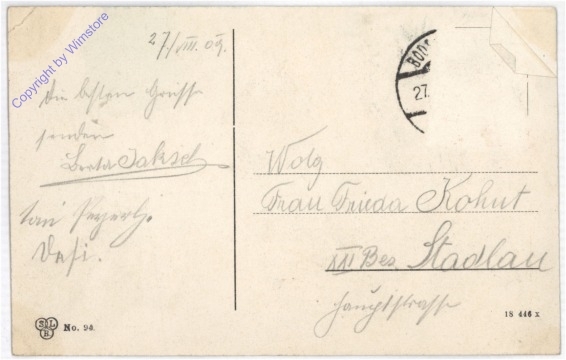 Copyright by Wimstore
27/VIII. 09.
Die besten Grüsse
senden
Berta Jaksch
Desi.
BOD
27.
Wolg
Frau Frieda Kohut
XXI Bez. Stadlau
Hauptstrasse
SLB No. 94.
18 446 x